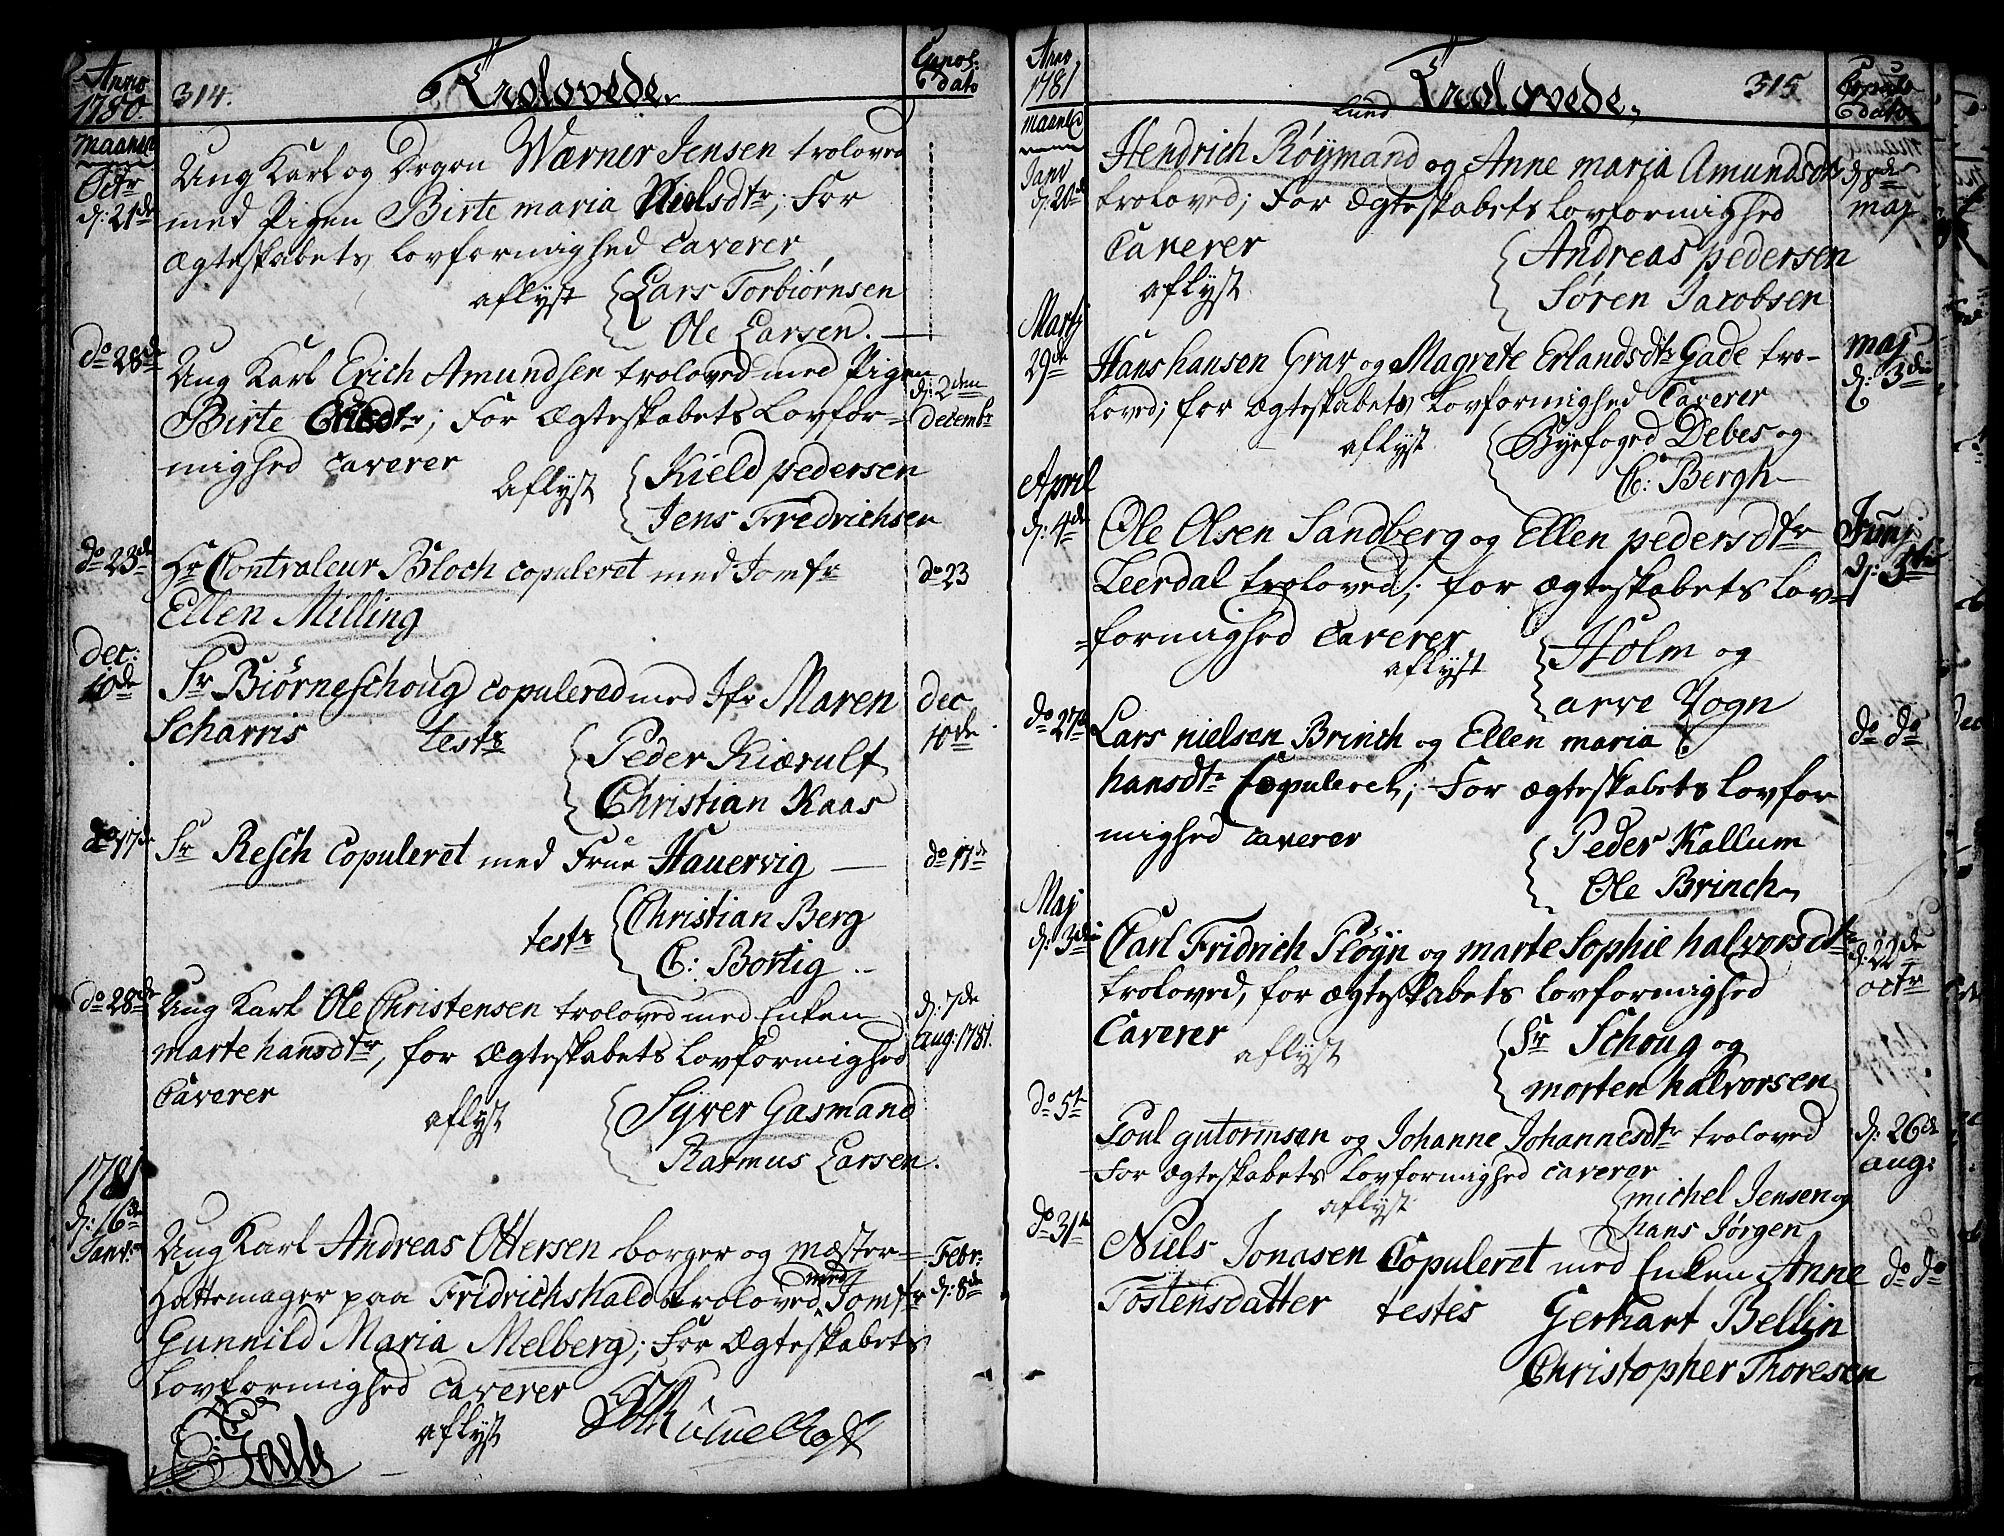 Anno 1780. 314. Trolovede. Copul: dato
Maaned
Octr d: 21de Ung Karl og Degn Wærner Jensen troloved
med Pigen Birte maria Nielsdtr; For
Ægteskabets lovformighed Caverer
aflyst Lars Torbiørnsen
Ole Larsen.
do 28de Ung Karl Erich Amundsen troloved med Pigen d: 2den
Birte Ericsdtr; For Ægteskabets Lovfor- Decembr
mighed Caverer
Aflyst Kield pedersen
Jens Fredrichsen
do 23de Hr Contraleur Bloch copuleret med Jomfr do 23
Ellen Milling
Dec: 10de Sr Biørneschoug copulered med Jfr Maren Dec 10de
Scharris testr Peder Kiærulf
Christian Kaas
do 17de Sr Resch Copuleret med Frue Hauervig do 17de
testr Christian Berg
C: Bortig
do 28de Ung Karl Ole Christensen troloved med Enken d: 7de
marte hansdtr, for Ægteskabets Lovformighed aug: 1781.
Caverer
aflyst Syver Gasmand
Rasmus Larsen.
1781
d: 16de Janv: Ung Karl Andreas Ottersen borger og mæster- Febr:
Hattemager paa Fridrichshald troloved med Jomfr d: 8de
Gunnild Maria Melberg; For Ægteskabets
Lovformighed Caverer
aflyst
Anno 1781 Trolovede, 315 Copul dato
Maaned
lund
Janv d: 20de Hendrich Røymand og Anne maria Amundsdtr d: 8de
troloved; For Ægteskabets lovformighed maj
Caverer Andreas pedersen
aflyst Søren Jacobsen
Martj 29de Hans hansen Grav og Magrete Erlandsdtr Gade tro- maj d: 3die
loved; for Ægteskabets Lovformighed Caverer
aflyst Byefoged Debes og
C: Bergh
April d: 4de Ole Olsen Sandberg og Ellen pedersdtr Junj
Leerdal troloved; for Ægteskabets lov-
formighed Caverer Holm og
aflyst arve Vogn
do 27de Lars nielsen Brinch og Ellen maria do do
hansdtr Copuleret; For Ægteskabets lovfor
mighed Caverer
Peder Kallum
Ole Brinch
Maj d: 3die Carl Fridrich Pløyn og marte Sophie halvorsdtr d: 22de
troloved, for Ægteskabets lovformighed octr
Caverer Sr Schoug og
aflyst morten halvorsen
do 5te Poul gutormsen og Johanne Johannesdtr troloved d: 26de
For Ægteskabets Lovformighed Caverer aug:
aflyst michel Jensen og
hans Jørgen
do 31te Niels Jonasen Copuleret med Enken Anne do do
Tostensdatter testes Gerhart Bellin
Christopher Thoresen